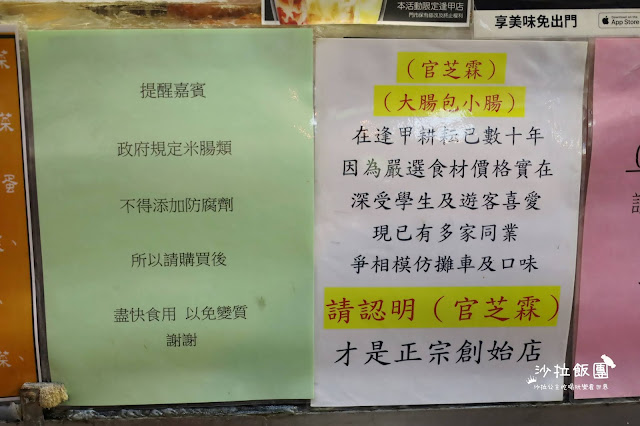 本活動限定逢甲店
門市保有修改及終止權利
享美味免出門
App Store
提醒嘉賓
政府規定米腸類
不得添加防腐劑
所以請購買後
盡快食用 以免變質
謝謝
（官芝霖）
（大腸包小腸）
在逢甲耕耘已數十年
因為嚴選食材價格實在
深受學生及遊客喜愛
現已有多家同業
爭相模仿攤車及口味
請認明（官芝霖）
才是正宗創始店
菜
蛋
菜
沙拉飯團